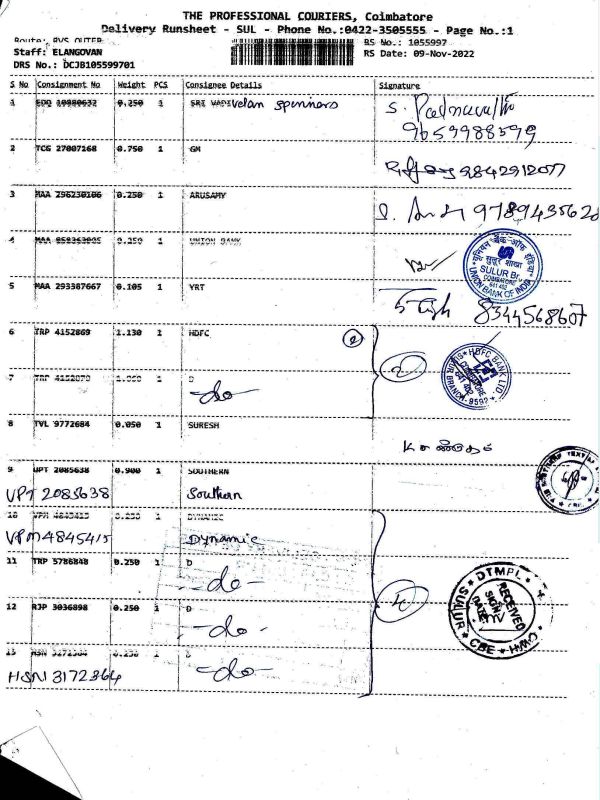 THE PROFESSIONAL COURIERS, Coimbatore
Delivery Runsheet - SUL - Phone No.:0422-3505555 - Page No.:1
Route: RVS OUTER
Staff: ELANGOVAN
DRS No.: DCJB105599701
RS No.: 1055997
RS Date: 09-Nov-2022
S No Consignment No Weight PCS Consignee Details Signature
1 EDQ 10980632 0.250 1 SRI VADI velan spinners
9659988599
2 TCG 27007268 0.750 1 GM
9842912077
3 MAA 296230106 0.250 1 ARUSAMY
9789435620
4 MAA 1 UNION BANK
SULUR Br.
COIMBATORE
641 402
UNION BANK OF INDIA
5 MAA 293387667 0.105 1 YRT
8344568607
6 TRP 4152869 1.130 1 HDFC
2
HDFC BANK LTD.
7 TRP 4152870 1 D
-do-
8 TVL 9772684 0.050 1 SURESH
9 UPT 2085638 0.900 1 SOUTHERN
UPT 2085638 Southern
10 VPM 4845415 0.250 1 DYNAMIC
VPM 4845415 Dynamic
11 TRP 5786848 0.250 1 D
-do-
12 RJP 3036898 0.250 1 D
-do-
DTMPL
RECEIVED
SIGN
DATE
SULUR
CBE
13 HSN 3172364 0.250 1 D
HSN 3172364 -do-